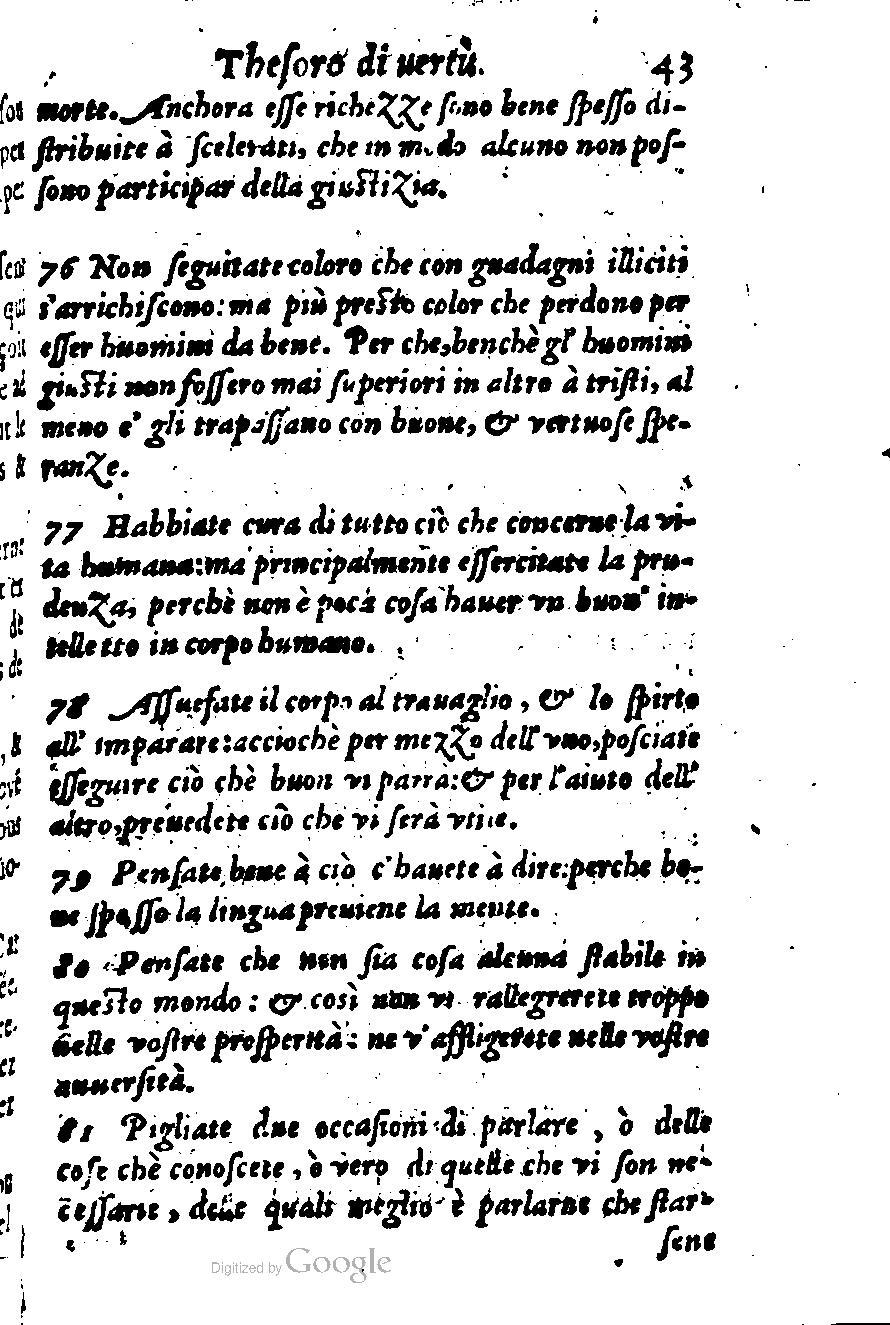 Theſoro di uertù. 43
morte. Anchora eſſe richeZZe ſono bene ſpeſſo di-
ſtribuite à ſcelerati, che in modo alcuno non poſ-
ſono participar della giuſtiZia.
76 Non ſeguitate coloro che con guadagni illiciti
s'arrichiſcono: ma più preſto color che perdono per
eſſer huomini da bene. Per che, benchè gl' huomini
giuſti non foſſero mai ſuperiori in altro à triſti, al
meno e' gli trapaſſano con buone, & vertuoſe ſpe-
ranZe.
77 Habbiate cura di tutto ciò che concerne la vi-
ta humana: ma principalmente eſſercitate la pru-
denZa, perchè non è poca coſa hauer vn buon' in-
telletto in corpo humano.
78 Aſſuefate il corpo al trauaglio, & lo ſpirto
all' imparare: acciochè per meZZo dell' vno, poſciate
eſſeguire ciò chè buon vi parrà: & per l'aiuto dell'
altro, preuedete ciò che vi ſerà vtile.
79 Penſate bene à ciò c'hauete à dire: perche be-
ne ſpeſſo la lingua preuiene la mente.
80 Penſate che non ſia coſa alcuna ſtabile in
queſto mondo: & così non vi rallegrerete troppo
nelle voſtre proſperità: ne v'affligerete nelle voſtre
auuerſità.
81 Pigliate due occaſioni di parlare, ò delle
coſe chè conoſcete, ò vero di quelle che vi ſon ne-
ceſſarie, delle quali meglio è parlarne che ſtar-
ſene
Digitized by Google